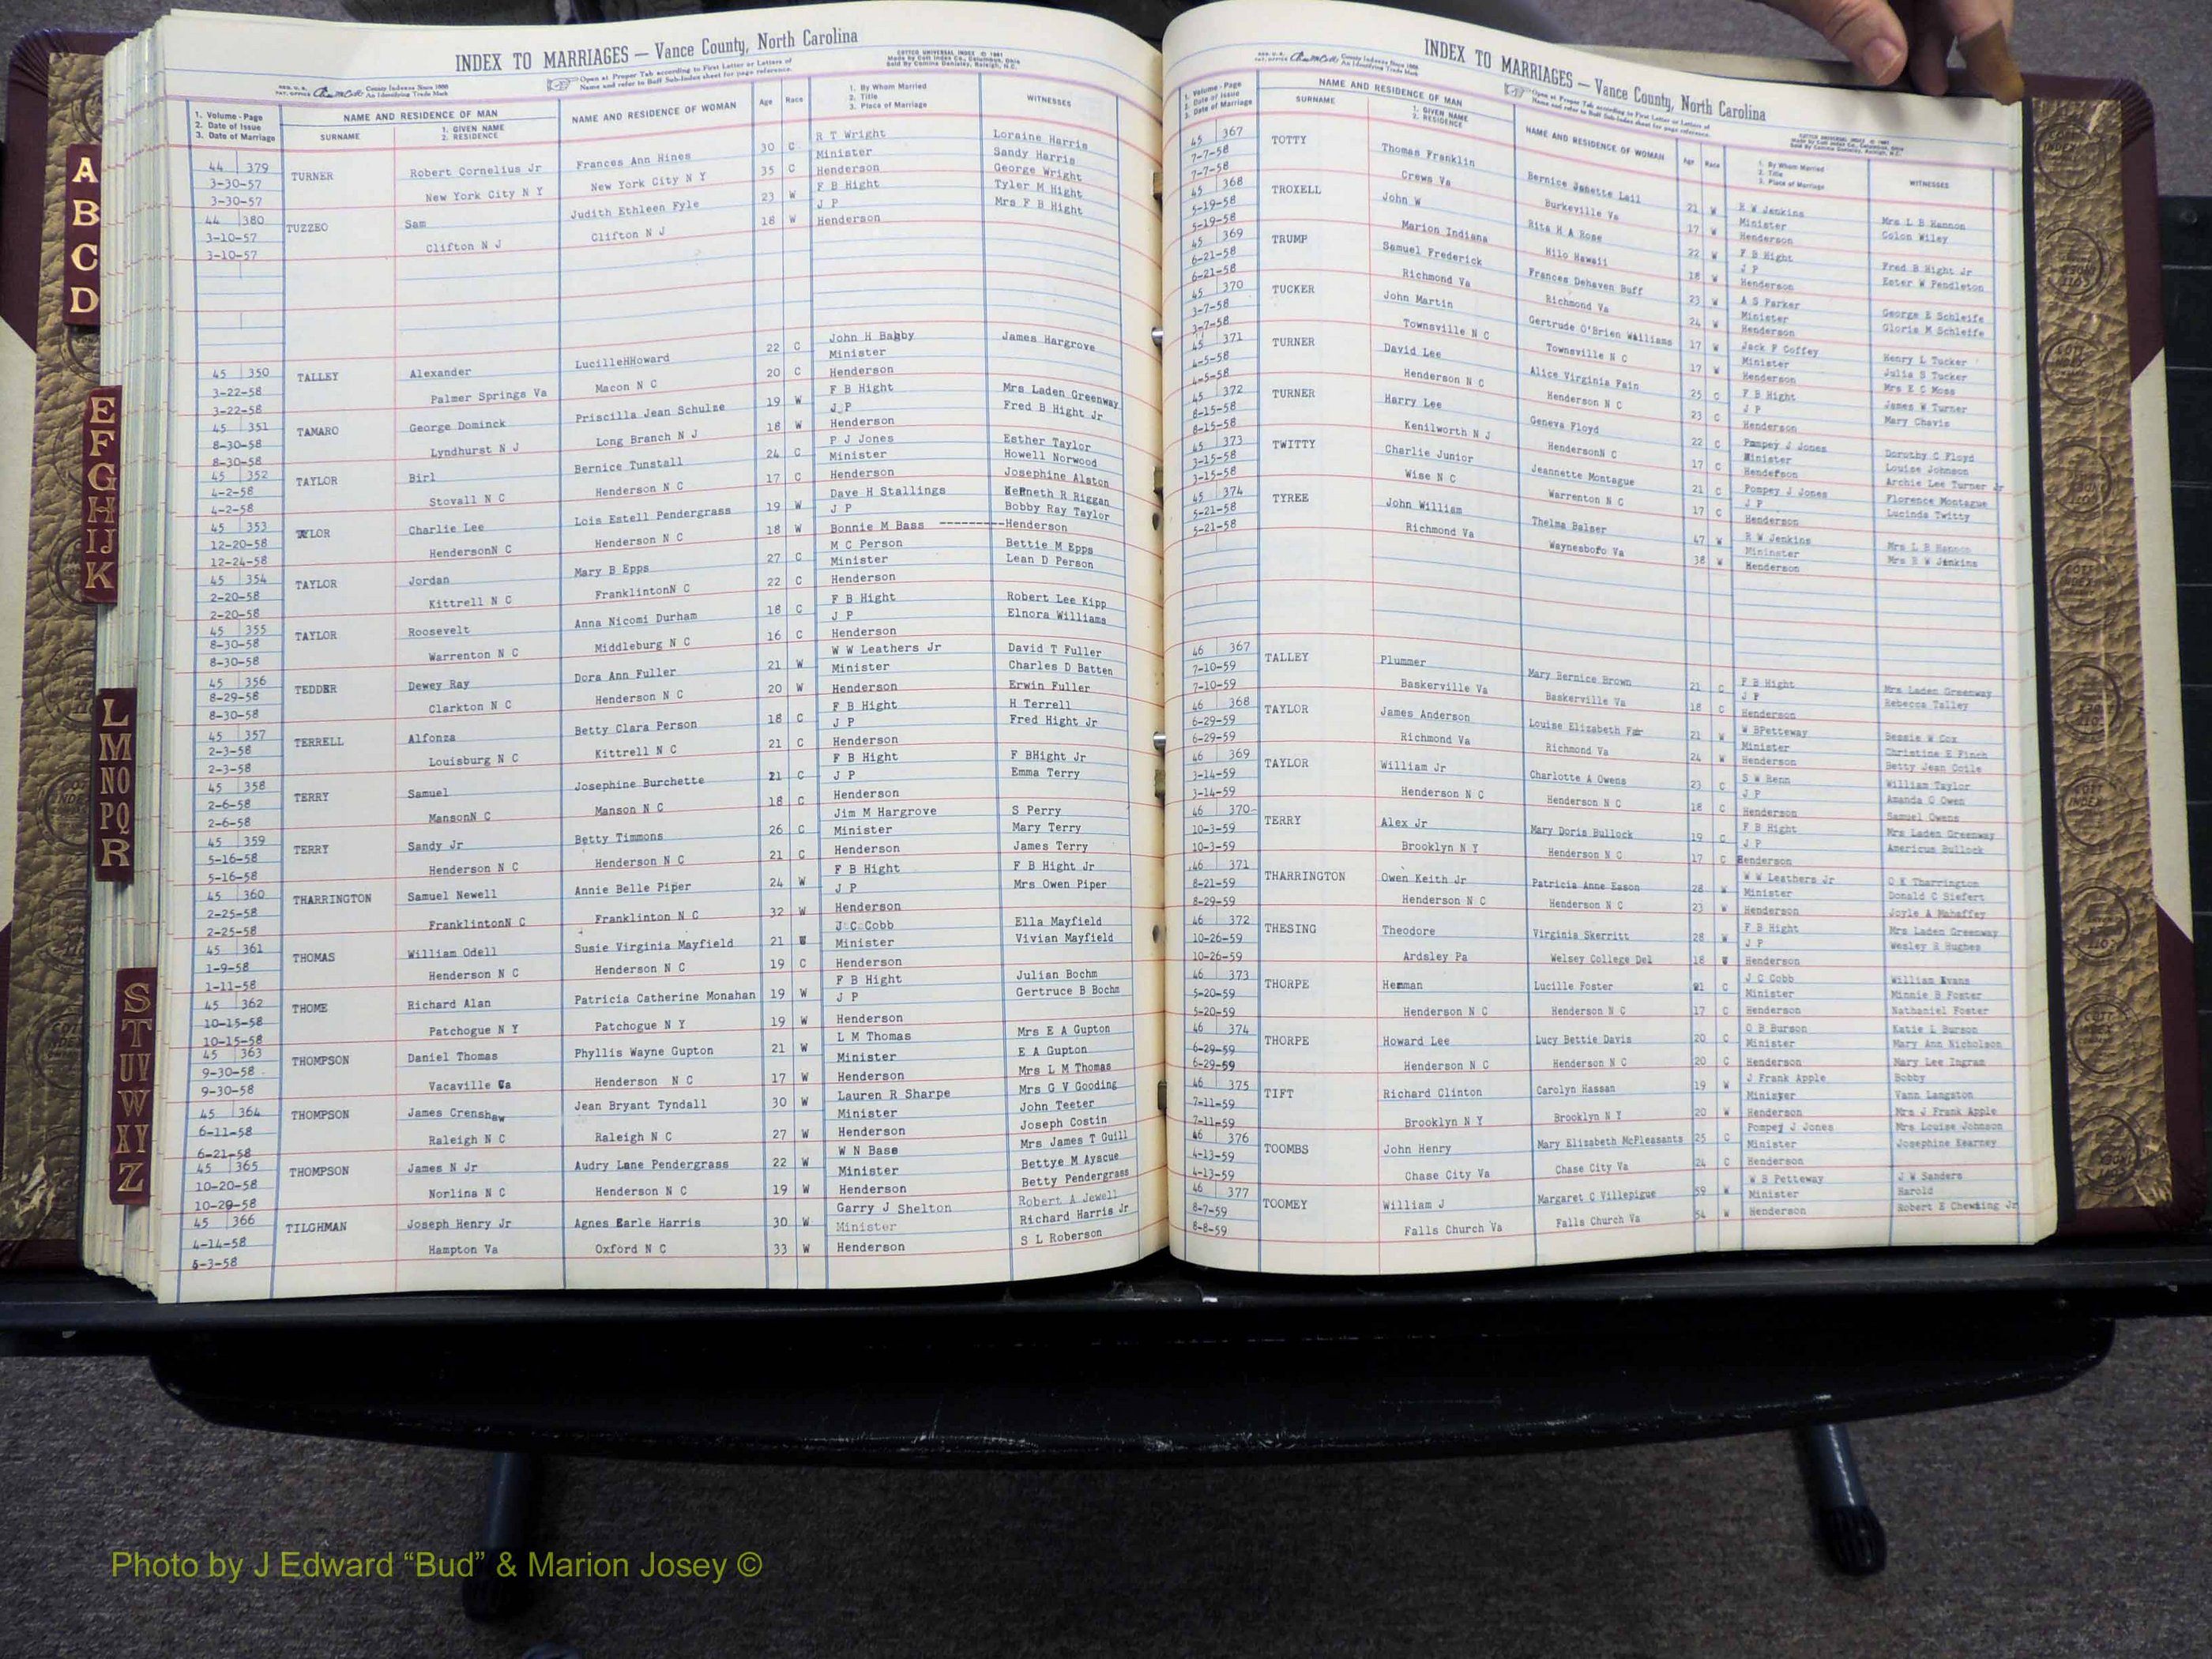 INDEX TO MARRIAGES — Vance County, North Carolina
COTT'S UNIVERSAL INDEX © 1961
County Indexes Since 1888
An Identifying Trade Mark
Open at Proper Tab according to First Letter or Letters of
Name and refer to Buff Sub-Index sheet for page reference.
1. Volume - Page
2. Date of Issue
3. Date of Marriage
NAME AND RESIDENCE OF MAN
SURNAME
1. GIVEN NAME
2. RESIDENCE
NAME AND RESIDENCE OF WOMAN
Age Race
1. By Whom Married
2. Title
3. Place of Marriage
WITNESSES
44 379 TURNER Robert Cornelius Jr Frances Ann Hines 30 C R T Wright Loraine Harris
3-30-57 New York City N Y New York City N Y 35 C Minister Sandy Harris
3-30-57 Henderson George Wright
44 380 TUZZEO Sam Judith Ethleen Fyle 23 W F B Hight Tyler M Hight
3-10-57 Clifton N J Clifton N J 18 W J P Mrs F B Hight
3-10-57 Henderson
45 350 TALLEY Alexander LucilleHHoward 22 C John H Babby James Hargrove
3-22-58 Palmer Springs Va Macon N C 20 C Minister
3-22-58 Henderson
45 351 TAMARO George Dominck Priscilla Jean Schulze 19 W F B Hight Mrs Laden Greenway
8-30-58 Lyndhurst N J Long Branch N J 18 W J P Fred B Hight Jr
8-30-58 Henderson
45 352 TAYLOR Birl Bernice Tunstall 24 C P J Jones Esther Taylor
4-2-58 Stovall N C Henderson N C 17 C Minister Howell Norwood
4-2-58 Henderson Josephine Alston
45 353 TAYLOR Charlie Lee Lois Estell Pendergrass 19 W Dave H Stallings Kenneth R Riggan
12-20-58 HendersonN C Henderson N C 18 W J P Bobby Ray Taylor
12-24-58 Bonnie M Bass ----------Henderson
45 354 TAYLOR Jordan Mary B Epps 27 C M C Person Bettie M Epps
2-20-58 Kittrell N C FranklintonN C 22 C Minister Lean D Person
2-20-58 Henderson
45 355 TAYLOR Roosevelt Anna Nicomi Durham 18 C F B Hight Robert Lee Kipp
8-30-58 Warrenton N C Middleburg N C 16 C J P Elnora Williams
8-30-58 Henderson
45 356 TEDDER Dewey Ray Dora Ann Fuller 21 W W W Leathers Jr David T Fuller
8-29-58 Clarkton N C Henderson N C 20 W Minister Charles D Batten
8-30-58 Henderson Erwin Fuller
45 357 TERRELL Alfonza Betty Clara Person 18 C F B Hight H Terrell
2-3-58 Louisburg N C Kittrell N C 21 C J P Fred Hight Jr
2-3-58 Henderson
45 358 TERRY Samuel Josephine Burchette 21 C F B Hight F BHight Jr
2-6-58 MansonN C Manson N C 18 C J P Emma Terry
2-6-58 Henderson
45 359 TERRY Sandy Jr Betty Timmons 26 C Jim M Hargrove S Perry
5-16-58 Henderson N C Henderson N C 21 C Minister Mary Terry
5-16-58 Henderson James Terry
45 360 THARRINGTON Samuel Newell Annie Belle Piper 24 W F B Hight F B Hight Jr
2-25-58 FranklintonN C Franklinton N C 32 W J P Mrs Owen Piper
2-25-58 Henderson
45 361 THOMAS William Odell Susie Virginia Mayfield 21 J C Cobb Ella Mayfield
1-9-58 Henderson N C Henderson N C 19 C Minister Vivian Mayfield
1-11-58 Henderson
45 362 THOME Richard Alan Patricia Catherine Monahan 19 W F B Hight Julian Bochm
10-15-58 Patchogue N Y Patchogue N Y 19 W J P Gertruce B Bochm
10-15-58 Henderson
45 363 THOMPSON Daniel Thomas Phyllis Wayne Gupton 21 W L M Thomas Mrs E A Gupton
9-30-58 Vacaville Ca Henderson N C 17 W Minister E A Gupton
9-30-58 Henderson Mrs L M Thomas
45 364 THOMPSON James Crenshaw Jean Bryant Tyndall 30 W Lauren R Sharpe Mrs G V Gooding
6-11-58 Raleigh N C Raleigh N C 27 W Minister John Teeter
6-21-58 Henderson Joseph Costin
45 365 THOMPSON James N Jr Audry Lane Pendergrass 22 W W N Base Mrs James T Guill
10-20-58 Norlina N C Henderson N C 19 W Minister Bettye M Ayscue
10-29-58 Henderson Betty Pendergrass
45 366 TILGHMAN Joseph Henry Jr Agnes Earle Harris 30 W Garry J Shelton Robert A Jewell
4-14-58 Hampton Va Oxford N C 33 W Minister Richard Harris Jr
5-3-58 Henderson S L Roberson
INDEX TO MARRIAGES — Vance County, North Carolina
County Indexes Since 1888
An Identifying Trade Mark
Open at Proper Tab according to First Letter or Letters of
Name and refer to Buff Sub-Index sheet for page reference.
1. Volume - Page
2. Date of Issue
3. Date of Marriage
NAME AND RESIDENCE OF MAN
SURNAME
1. GIVEN NAME
2. RESIDENCE
NAME AND RESIDENCE OF WOMAN
Age Race
1. By Whom Married
2. Title
3. Place of Marriage
WITNESSES
45 367 TOTTY Thomas Franklin Bernice Janette Lail 21 W R W Jenkins Mrs L B Hannon
7-7-58 Crews Va Burkeville Va 17 W Minister Colon Wiley
7-7-58 Henderson
45 368 TROXELL John W Rita H A Rose 22 W F B Hight Fred B Hight Jr
5-19-58 Marion Indiana Hilo Hawaii 18 W J P Ester W Pendleton
5-19-58 Henderson
45 369 TRUMP Samuel Frederick Frances Dehaven Buff 23 W A S Parker George E Schleife
6-21-58 Richmond Va Richmond Va 24 W Minister Gloria M Schleife
6-21-58 Henderson
45 370 TUCKER John Martin Gertrude O'Brien Williams 17 W Jack F Coffey Henry L Tucker
3-7-58 Townsville N C Townsville N C 17 W Minister Julia S Tucker
3-7-58 Henderson Mrs E C Moss
45 371 TURNER David Lee Alice Virginia Fain 25 C F B Hight James W Turner
4-5-58 Henderson N C Henderson N C 23 C J P Mary Chavis
4-5-58 Henderson
45 372 TURNER Harry Lee Geneva Floyd 22 C Pompey J Jones Dorothy C Floyd
8-15-58 Kenilworth N J HendersonN C 17 C Minister Louise Johnson
8-15-58 Henderson Archie Lee Turner Jr
45 373 TWITTY Charlie Junior Jeannette Montague 21 C Pompey J Jones Florence Montague
3-15-58 Wise N C Warrenton N C 17 C J P Lucinda Twitty
3-15-58 Henderson
45 374 TYREE John William Thelma Balser 47 W R W Jenkins Mrs L B Hannon
5-21-58 Richmond Va Waynesboro Va 38 W Mininster Mrs R W Jenkins
5-21-58 Henderson
46 367 TALLEY Plummer Mary Bernice Brown 21 C F B Hight Mrs Laden Greenway
7-10-59 Baskerville Va Baskerville Va 18 C J P Rebecca Talley
7-10-59 Henderson
46 368 TAYLOR James Anderson Louise Elizabeth 21 W W BPetteway Bessie W Cox
6-29-59 Richmond Va Richmond Va 24 W Minister Christine E Finch
6-29-59 Henderson Betty Jean Coile
46 369 TAYLOR William Jr Charlotte A Owens 23 C S W Renn William Taylor
3-14-59 Henderson N C Henderson N C 18 C J P Amanda O Owen
3-14-59 Henderson Samuel Owens
46 370 TERRY Alex Jr Mary Doris Bullock 19 C F B Hight Mrs Laden Greenway
10-3-59 Brooklyn N Y Henderson N C 17 C J P Americus Bullock
10-3-59 Henderson
46 371 THARRINGTON Owen Keith Jr Patricia Anne Eason 28 W W W Leathers Jr O K Tharrington
8-21-59 Henderson N C Henderson N C 23 W Minister Donald C Siefert
8-29-59 Henderson Joyle A Mahaffey
46 372 THESING Theodore Virginia Skerritt 28 W F B Hight Mrs Laden Greenway
10-26-59 Ardsley Pa Welsey College Del 18 W J P Wesley R Hughes
10-26-59 Henderson
46 373 THORPE Herman Lucille Foster 21 C J C Cobb William Evans
5-20-59 Henderson N C Henderson N C 17 C Minister Minnie B Foster
5-20-59 Henderson Nathaniel Foster
46 374 THORPE Howard Lee Lucy Bettie Davis 20 C O B Burson Katie L Burson
6-29-59 Henderson N C Henderson N C 20 C Minister Mary Ann Nicholson
6-29-59 Henderson Mary Lee Ingram
46 375 TIFT Richard Clinton Carolyn Hassan 19 W J Frank Apple Bobby
7-11-59 Brooklyn N Y Brooklyn N Y 20 W Minister Vann Langston
7-11-59 Henderson Mrs J Frank Apple
46 376 TOOMBS John Henry Mary Elizabeth McPleasants 25 C Pompey J Jones Mrs Louise Johnson
4-13-59 Chase City Va Chase City Va 24 C Minister Josephine Kearney
4-13-59 Henderson
46 377 TOOMEY William J Margaret C Villepigue 59 W W B Petteway J W Sanders
8-7-59 Falls Church Va Falls Church Va 54 W Minister Harold
8-8-59 Henderson Robert E Chewning Jr
A
B
C
D
E
F
G
H
IJ
K
L
M
NO
PQ
R
S
T
UV
W
XY
Z
Photo by J Edward “Bud” & Marion Josey ©